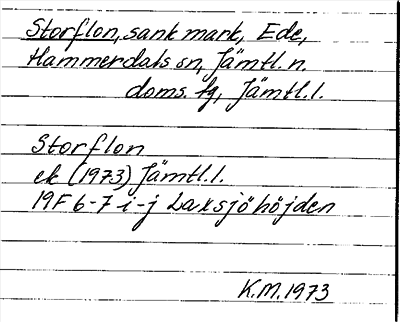 Storflon, sank mark, Ede,
Hammerdals sn, Jämtl. n.
doms. fg, Jämtl.l.
Storflon
ek (1973) Jämtl.l.
19F 6-7 i-j Laxsjöhöjden
K.M. 1973